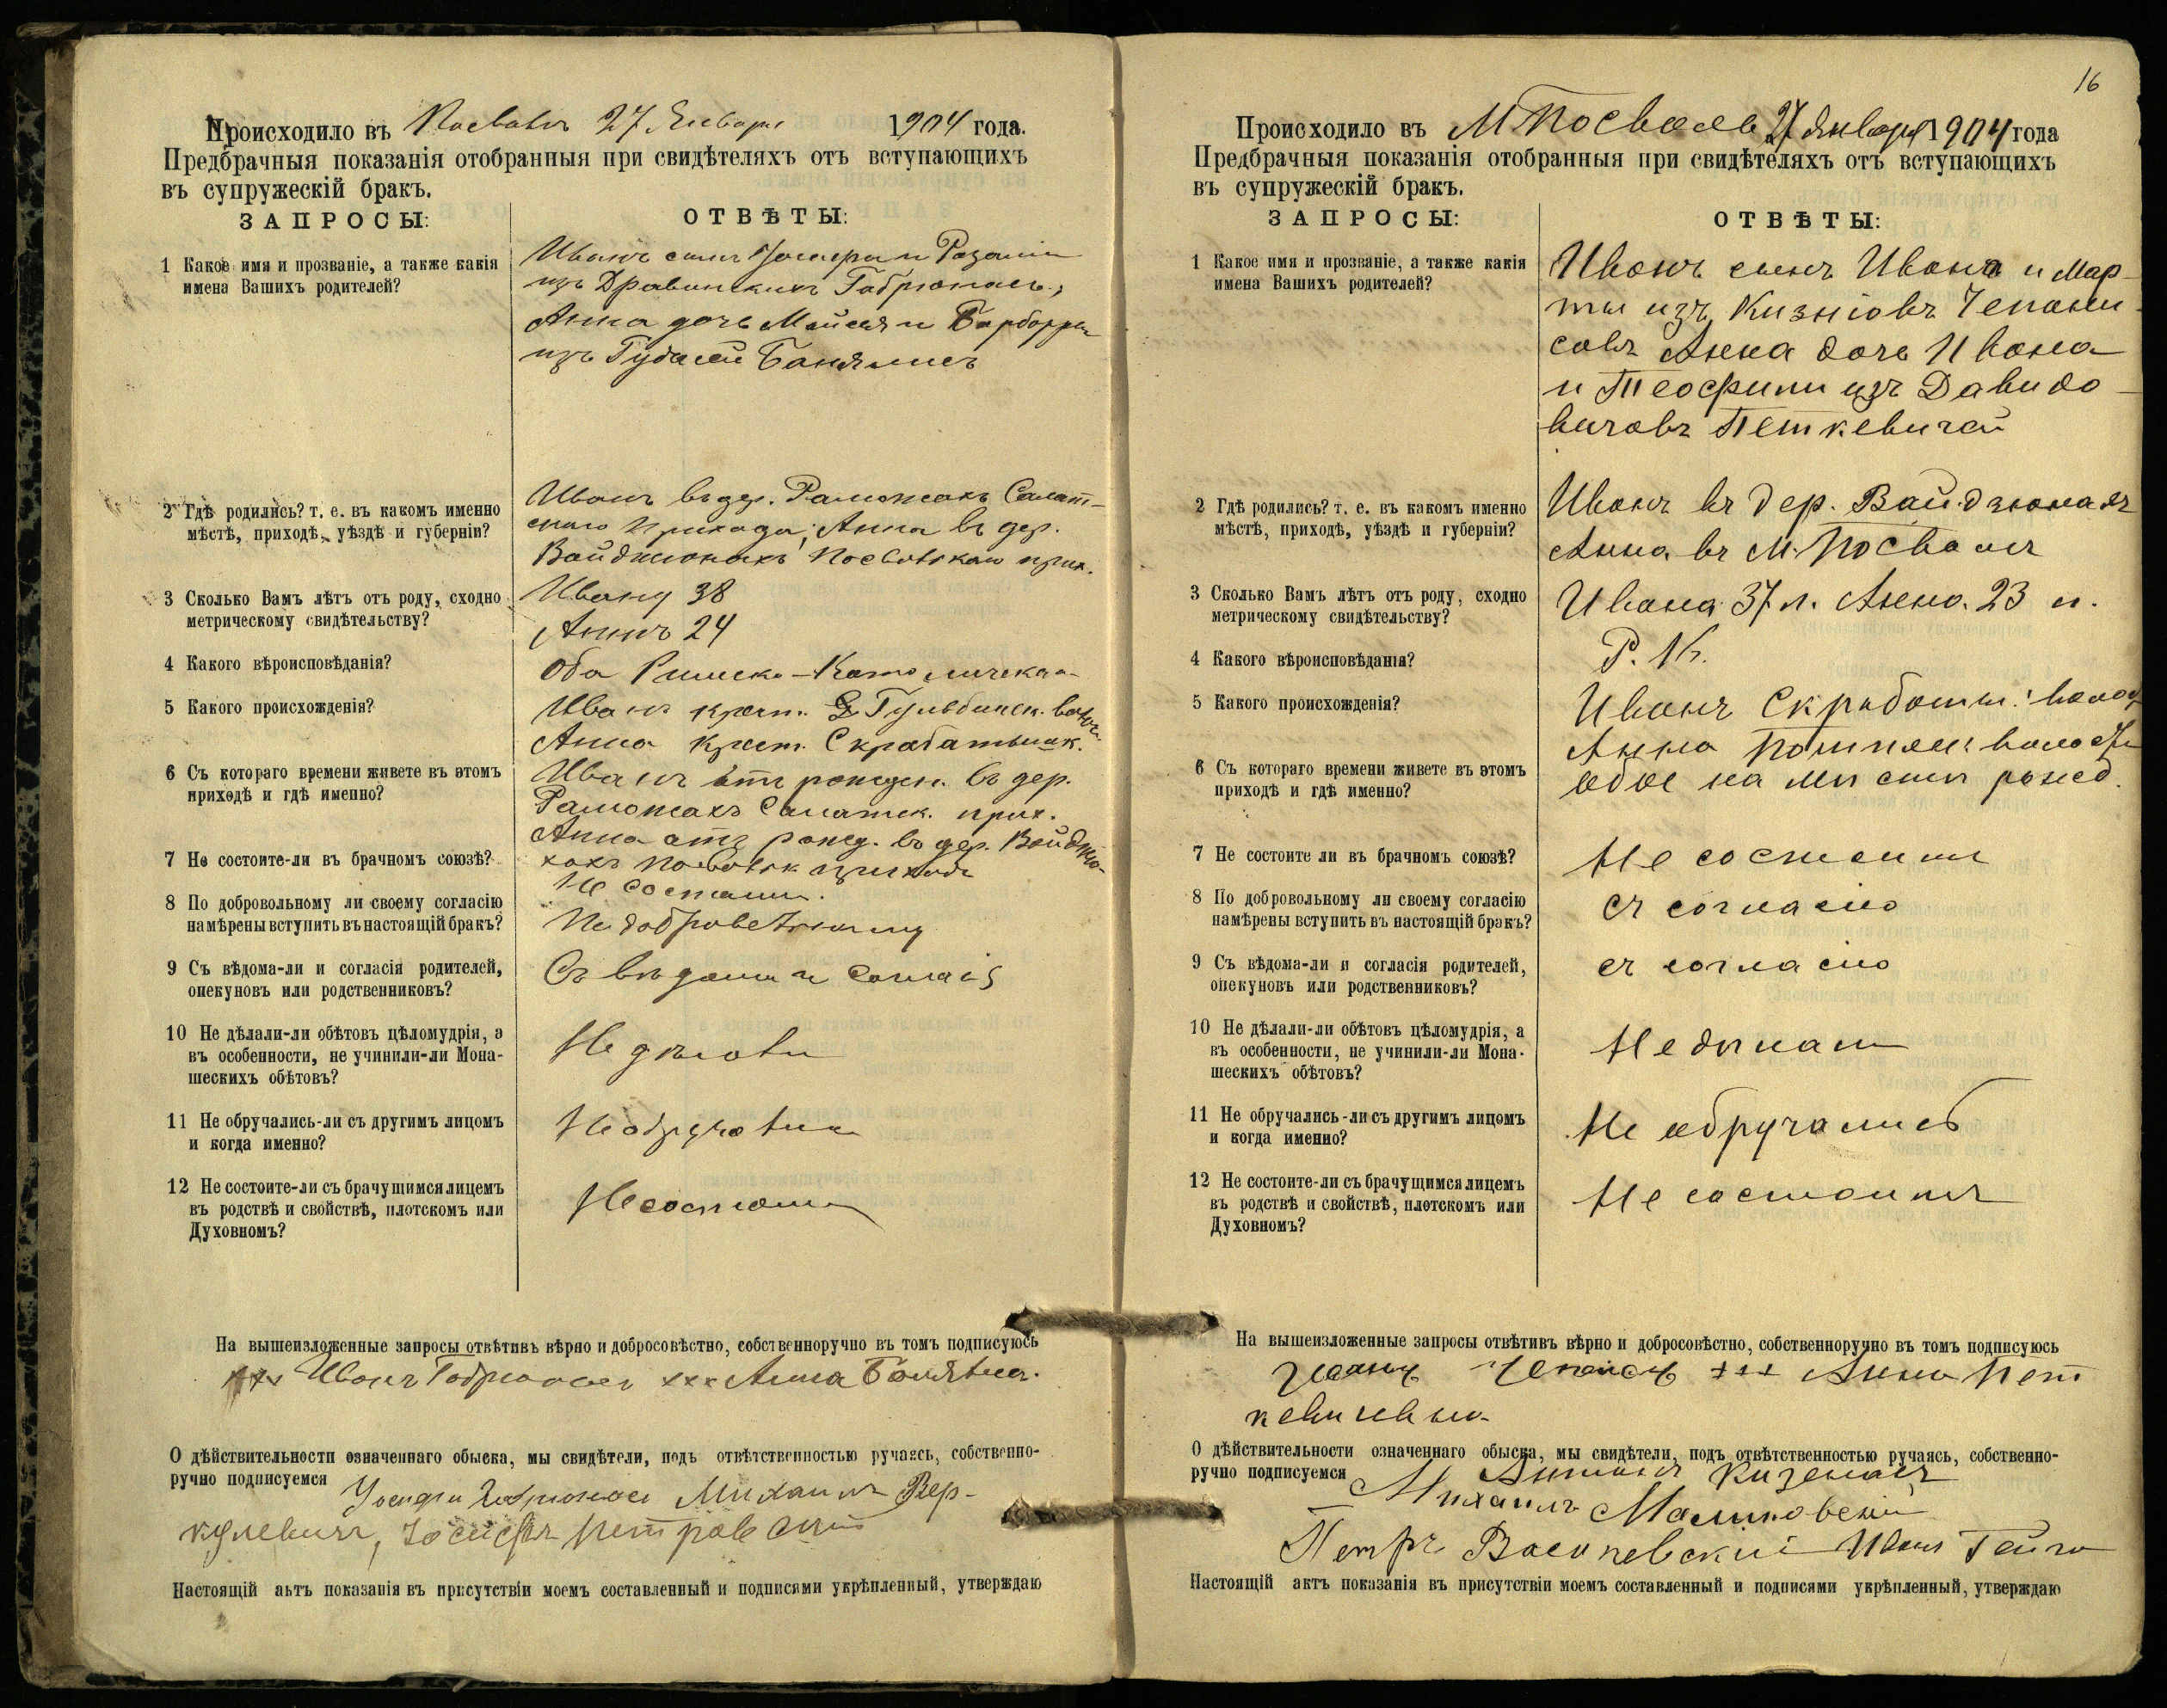 Происходило въ Посволь 27 Января 1904 года.
Предбрачныя показанія отобранныя при свидѣтеляхъ отъ вступающихъ
въ супружескій бракъ.
ЗАПРОСЫ:
ОТВѢТЫ:
1 Какое имя и прозваніе, а также какія
имена Вашихъ родителей?
Иванъ сынъ Іосифа и Розаліи
изъ Габрюнасъ,
Анна дочь и Барбары
изъ
2 Гдѣ родились? т. е. въ какомъ именно
мѣстѣ, приходѣ, уѣздѣ и губерніи?
Иванъ въ дер. Раможахъ Салат-
скаго прихода, Анна въ дер.
прих.
3 Сколько Вамъ лѣтъ отъ роду, сходно
метрическому свидѣтельству?
Ивану 38
Аннѣ 24
4 Какого вѣроисповѣданія?
Оба Римско-Католическаго
5 Какого происхожденія?
Иванъ крест. Гульбинск. волости
Анна крест. Скрабатышк.
6 Съ котораго времени живете въ этомъ
приходѣ и гдѣ именно?
Иванъ отъ рожден. въ дер.
Раможахъ Салатск. прих.
Анна отъ рожд. въ дер. Вайджю-
нахъ
7 Не состоите-ли въ брачномъ союзѣ?
Не состоим.
8 По добровольному ли своему согласію
намѣрены вступить въ настоящій бракъ?
По добровольному
9 Съ вѣдома-ли и согласія родителей,
опекуновъ или родственниковъ?
Съ вѣдома и согласія
10 Не дѣлали-ли обѣтовъ цѣломудрія, а
въ особенности, не учинили-ли Мона-
шескихъ обѣтовъ?
Не дѣлали
11 Не обручались-ли съ другимъ лицомъ
и когда именно?
Не обручались
12 Не состоите-ли съ брачущимся лицемъ
въ родствѣ и свойствѣ, плотскомъ или
Духовномъ?
Не состоим
На вышеизложенные запросы отвѣтивъ вѣрно и добросовѣстно, собственноручно въ томъ подписуюсь
xxx Иванъ Габрюнасъ xxx Анна
О дѣйствительности означеннаго обыска, мы свидѣтели, подъ отвѣтственностью ручаясь, собственно-
ручно подписуемся Габрюнасъ Михаилъ
Іосифъ Петровскій
Настоящій актъ показанія въ присутствіи моемъ составленный и подписями укрѣпленный, утверждаю
16
Происходило въ М Посволь 27 Января 1904 года
Предбрачныя показанія отобранныя при свидѣтеляхъ отъ вступающихъ
въ супружескій бракъ.
ЗАПРОСЫ:
ОТВѢТЫ:
1 Какое имя и прозваніе, а также какія
имена Вашихъ родителей?
Иванъ сынъ Ивана и Мар-
ты изъ Кизнісвъ Чепони-
совъ Анна дочь Ивана
и Теофили изъ Давидо-
вичовъ Петкевичай
2 Гдѣ родились? т. е. въ какомъ именно
мѣстѣ, приходѣ, уѣздѣ и губерніи?
Иванъ въ дер. Вайдзюнахъ
Анна въ м. Посволѣ
3 Сколько Вамъ лѣтъ отъ роду, сходно
метрическому свидѣтельству?
Ивана 37 л. Анна. 23 л.
4 Какого вѣроисповѣданія?
Р. К.
5 Какого происхожденія?
Иванъ Скрабатыш. волос
Анна волости
6 Съ котораго времени живете въ этомъ
приходѣ и гдѣ именно?
обое на мѣсти рожд.
7 Не состоите ли въ брачномъ союзѣ?
Не состоимъ
8 По добровольному ли своему согласію
намѣрены вступить въ настоящій бракъ?
съ согласію
9 Съ вѣдома-ли и согласія родителей,
опекуновъ или родственниковъ?
съ согласію
10 Не дѣлали-ли обѣтовъ цѣломудрія, а
въ особенности, не учинили-ли Мона-
шескихъ обѣтовъ?
Не дылали
11 Не обручались-ли съ другимъ лицомъ
и когда именно?
Не обручались
12 Не состоите-ли съ брачущимся лицемъ
въ родствѣ и свойствѣ, плотскомъ или
Духовномъ?
Не состоимъ
На вышеизложенные запросы отвѣтивъ вѣрно и добросовѣстно, собственноручно въ томъ подписуюсь
+++ Анна Пет
кевичевна
О дѣйствительности означеннаго обыска, мы свидѣтели, подъ отвѣтственностью ручаясь, собственно-
ручно подписуемся Антонъ Кизенасъ
Михаилъ Малиновскій
Петръ Василевскій Иванъ
Настоящій актъ показанія въ присутствіи моемъ составленный и подписями укрѣпленный, утверждаю